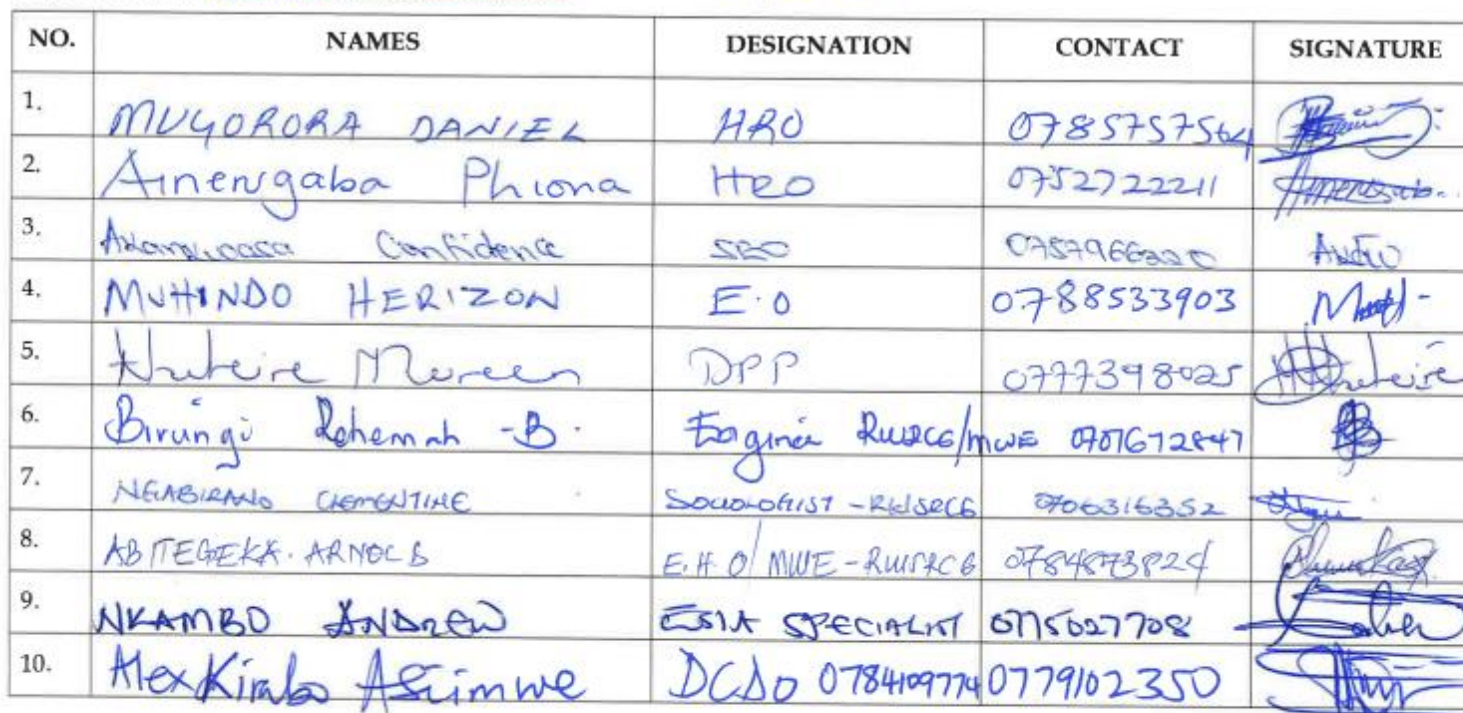 NO. NAMES DESIGNATION CONTACT SIGNATURE
1. MUGORORA DANIEL HRO 0785757564
2. Ainengaba Phiona HRO 0752722211
3. Confidence
4. MUHINDO HERIZON E.O 0788533903
5. Mureen DPP 0777398025
6. Birungi Rehemah -B. RWSRC6/MWE 0701672847
7. NGABIRANO CLEMENTINE SOCIOLOGIST -RWSRC6 0706316352
8. ABITEGEKA. ARNOLD E.H.O/ MWE -RWSRC6 0784873824
9. NKAMBO ANDREW ESIA SPECIALIST 0775027708
10. Alex Kirabo Asiimwe DCDO 0784109774 0779102350